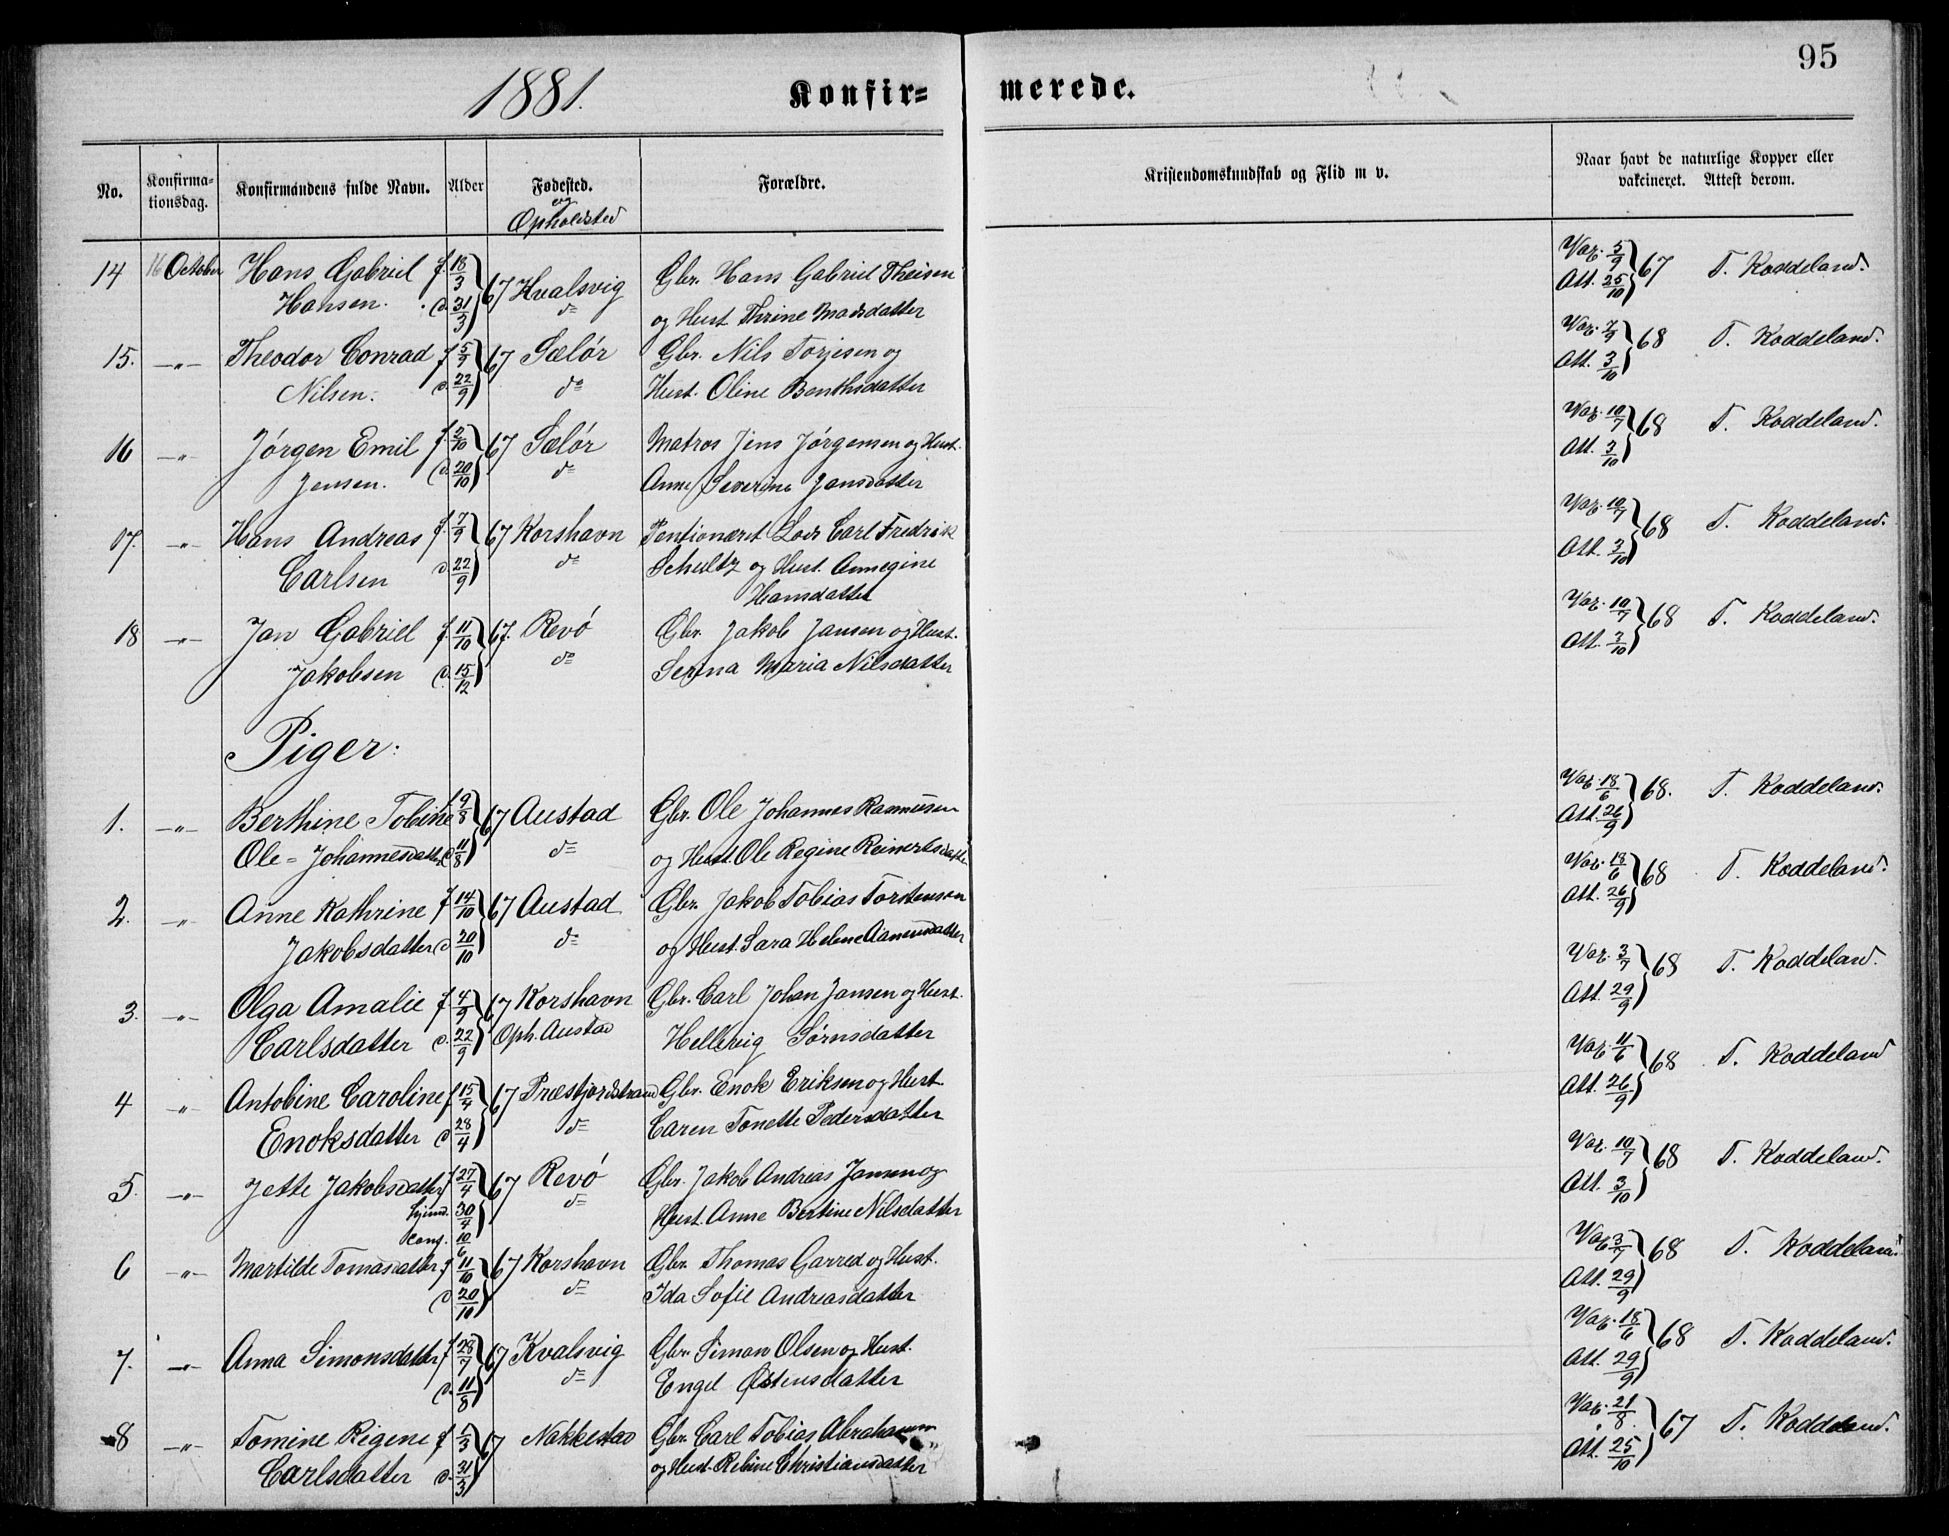 95
1881. Konfir= merede.
No. Konfirma-tionsdag. Konfirmandens fulde Navn. Alder Fødested. og Opholdsted Forældre. Kristendomskundskab og Flid m v. Naar havt de naturlige Kopper eller vakcineret. Attest derom.
14 16 October Hans Gabriel f. 18/3 67 Hvalsvig Gbr. Hans Gabriel Theisen Vax. 5/9 67 T. Koddeland.
Hansen. d. 31/3 do og Hust. Thrine Madsdatter Att. 25/10
15. —„— Theodor Conrad f 5/9 67 Sælør Gbr. Nils Torjesen og Vax. 7/9 68 T. Koddeland.
Nilsen. d. 22/9 do Hust. Oline Benthsdatter Att. 3/10
16 —„— Jørgen Emil f. 2/10 67 Sælør Matros Jens Jørgensen og Hust. Vax. 10/7 68 T. Koddeland.
Jensen. d. 20/10 do Anne Severine Jansdatter Att. 3/10
17. —„— Hans Andreas f. 7/9 67 Korshavn Pentioneret Lods Carl Fredrik Vax. 10/7 68 T. Koddeland.
Carlsen d. 22/9 do Schultz og Hust. Annegine Att. 3/10
Hansdatter
18 —„— Jan Gabriel f. 11/10 67. Revø Gbr. Jakob Jansen og Hust. Vax. 10/7 68 T. Koddeland.
Jakobsen d. 15/12 do Serina Maria Nilsdatter Att. 3/10
Piger:
1. —„— Berthine Tobine f 9/8 67 Austad Gbr. Ole Johannes Rasmussen Vax. 18/6 68. T. Koddeland.
Ole=Johannesdatter d 11/8 do og Hust. Ole Regine Reinertsdatter Att. 26/9
2. —„— Anne Kathrine f 14/10 67 Austad Gbr. Jakob Tobias Torstensen Vax. 18/6 68 T. Koddeland.
Jakobsdatter d. 20/10 do og Hust. Sara Helene Aanensdatter Att. 26/9
3. —„— Olga Amalie f. 4/9 67 Korshavn Gbr. Carl Johan Jansen og Hust. Vax. 3/7 68 T. Koddeland.
Carlsdatter d. 22/9 Oph. Austad Hellevig Sørnsdatter Att. 29/9
4 „ Antobine Caroline f 15/4 67 Præstjordstrand Gbr. Enok Eriksen og Hust. Vax. 11/6 68 T. Koddeland
Enoksdatter d 28/4 do Caren Tonette Pedersdatter Att. 26/9
5. —„— Jette Jakobsdatter f 27/4 67 Revø Gbr. Jakob Andreas Jansen og Vax. 10/7 68 T. Koddeland.
hjemd. 30/4 do Hust. Anne Bertine Nilsdatter Att. 3/10
cong. 10/6
6 —„— Martilde Tomasdatter f 11/10 67 Korshavn Gbr. Thomas Garred og Hust. Vax 3/7 68 T. Koddeland
d 20/10 do Ida Sofie Andreasdatter Att. 29/9
7. —„— Anna Simonsdatter f 28/7 67 Kvalsvig Gbr. Simon Olsen og Hust. Vax. 18/6 68 T. Koddeland.
d. 11/8 do Engel Østensdatter Att. 29/9
8 —„— Tomine Regine f 5/3 67 Nakkestad Gbr. Carl Tobias Abrahamsen Vax. 21/8. 67 T. Koddeland.
Carlsdatter d. 31/3 og Hust. Rebine Christiansdatter Att. 25/10